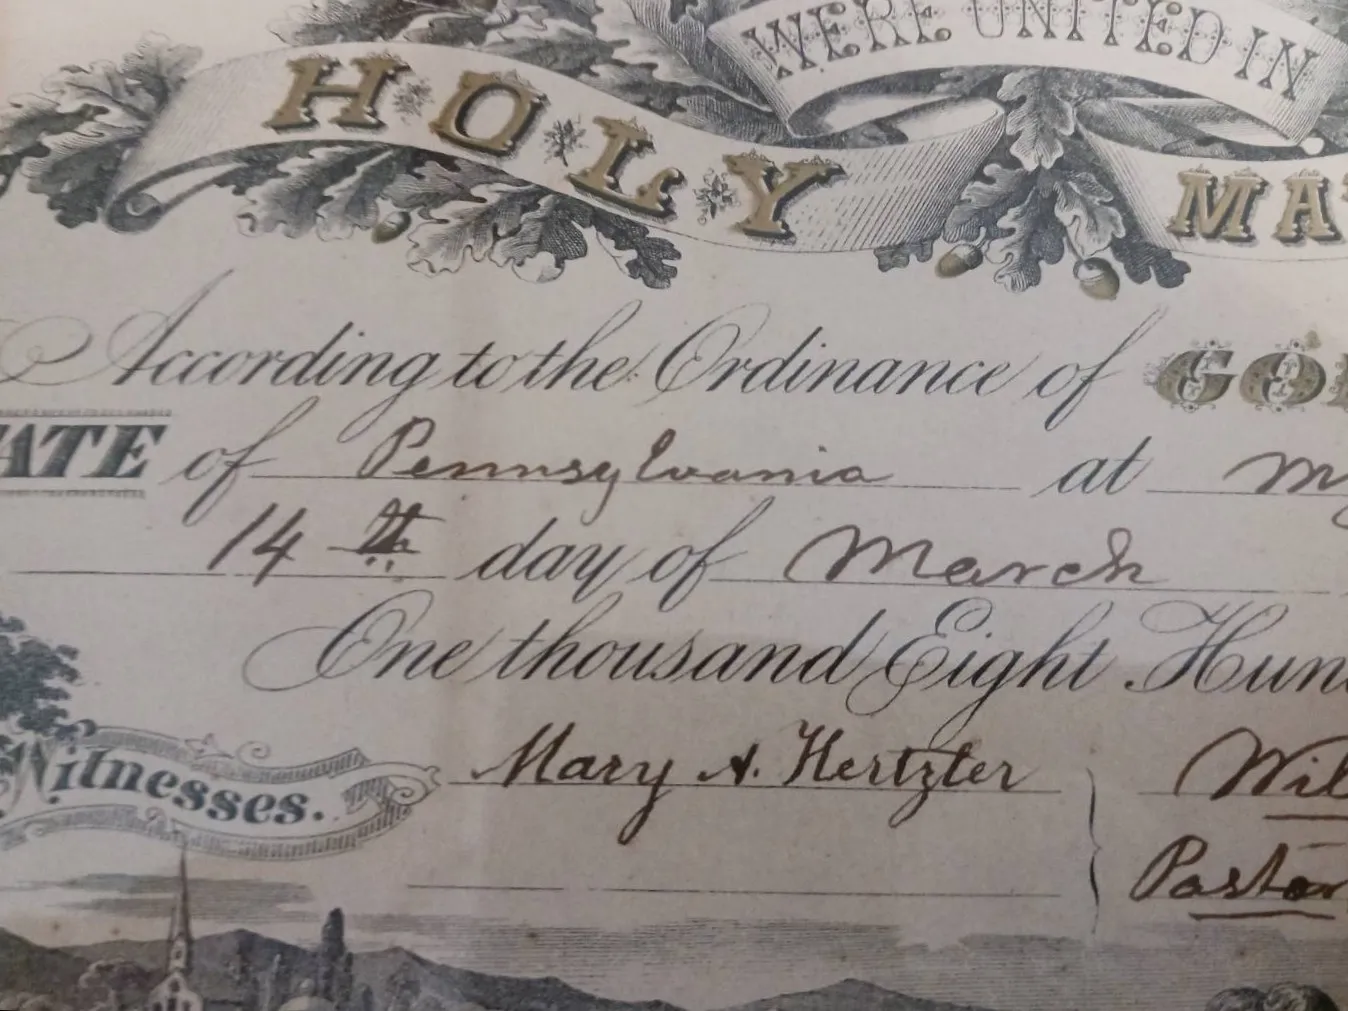 WERE UNITED IN
HOLY MA
According to the Ordinance of GO
ATE of Pennsylvania at My
14th day of March
One thousand Eight Hun
Witnesses. Mary A. Hertzler Wil
Pastor